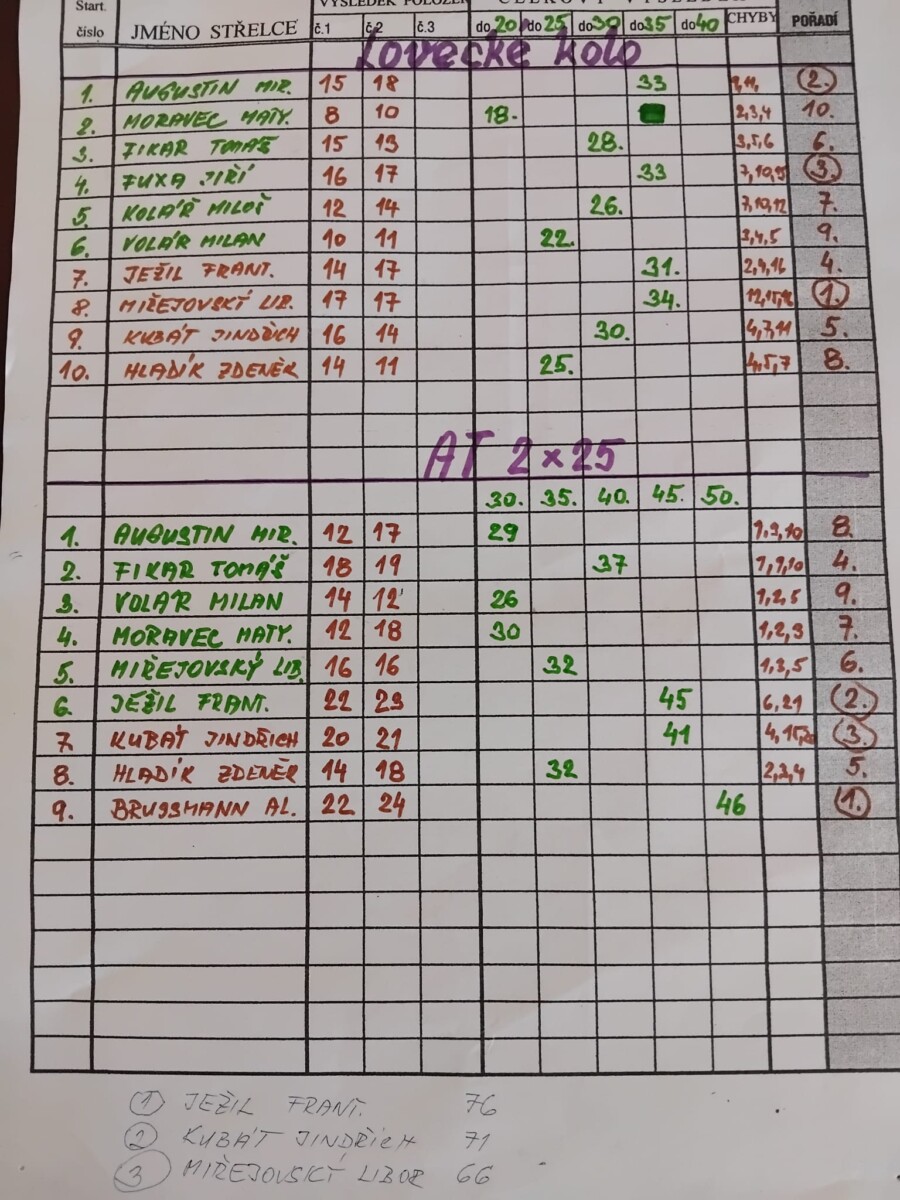 Start. VÝSLEDEK POLOŽEK CELKOVÝ VÝSLEDEK
číslo JMÉNO STŘELCE č.1 č.2 č.3 do 20 do 25 do 30 do 35 do 40 CHYBY POŘADÍ
Lovecké kolo
1. AUGUSTIN MIR. 15 18 33 2.
2. MORAVEC MATY. 8 10 18. 2,3,4 10.
3. FIKAR TOMÁŠ 15 13 28. 3,5,6 6.
4. FUXA JIŘÍ 16 17 33 3.
5. KOLÁŘ MILOŠ 12 14 26. 7,10,12 7.
6. VOLÁR MILAN 10 11 22. 3,4,5 9.
7. JEŽIL FRANT. 14 17 31. 4.
8. MIŘEJOVSKÝ LIB. 17 17 34. 1.
9. KUBÁT JINDŘICH 16 14 30. 4,7,11 5.
10. HLADÍK ZDENĚK 14 11 25. 4,5,7 8.
AT 2×25
30. 35. 40. 45. 50.
1. AUGUSTIN MIR. 12 17 29 1,3,10 8.
2. FIKAR TOMÁŠ 18 19 37 4.
3. VOLÁR MILAN 14 12 26 1,2,5 9.
4. MORAVEC MATY. 12 18 30 1,2,3 7.
5. MIŘEJOVSKÝ LIB. 16 16 32 1,3,5 6.
6. JEŽIL FRANT. 22 23 45 6,21 2.
7. KUBÁT JINDŘICH 20 21 41 3.
8. HLADÍK ZDENĚK 14 18 32 2,3,4 5.
9. BRUSSMANN AL. 22 24 46 1.
1 JEŽIL FRANT. 76
2 KUBÁT JINDŘICH 71
3 MIŘEJOVSKÝ LIBOR 66